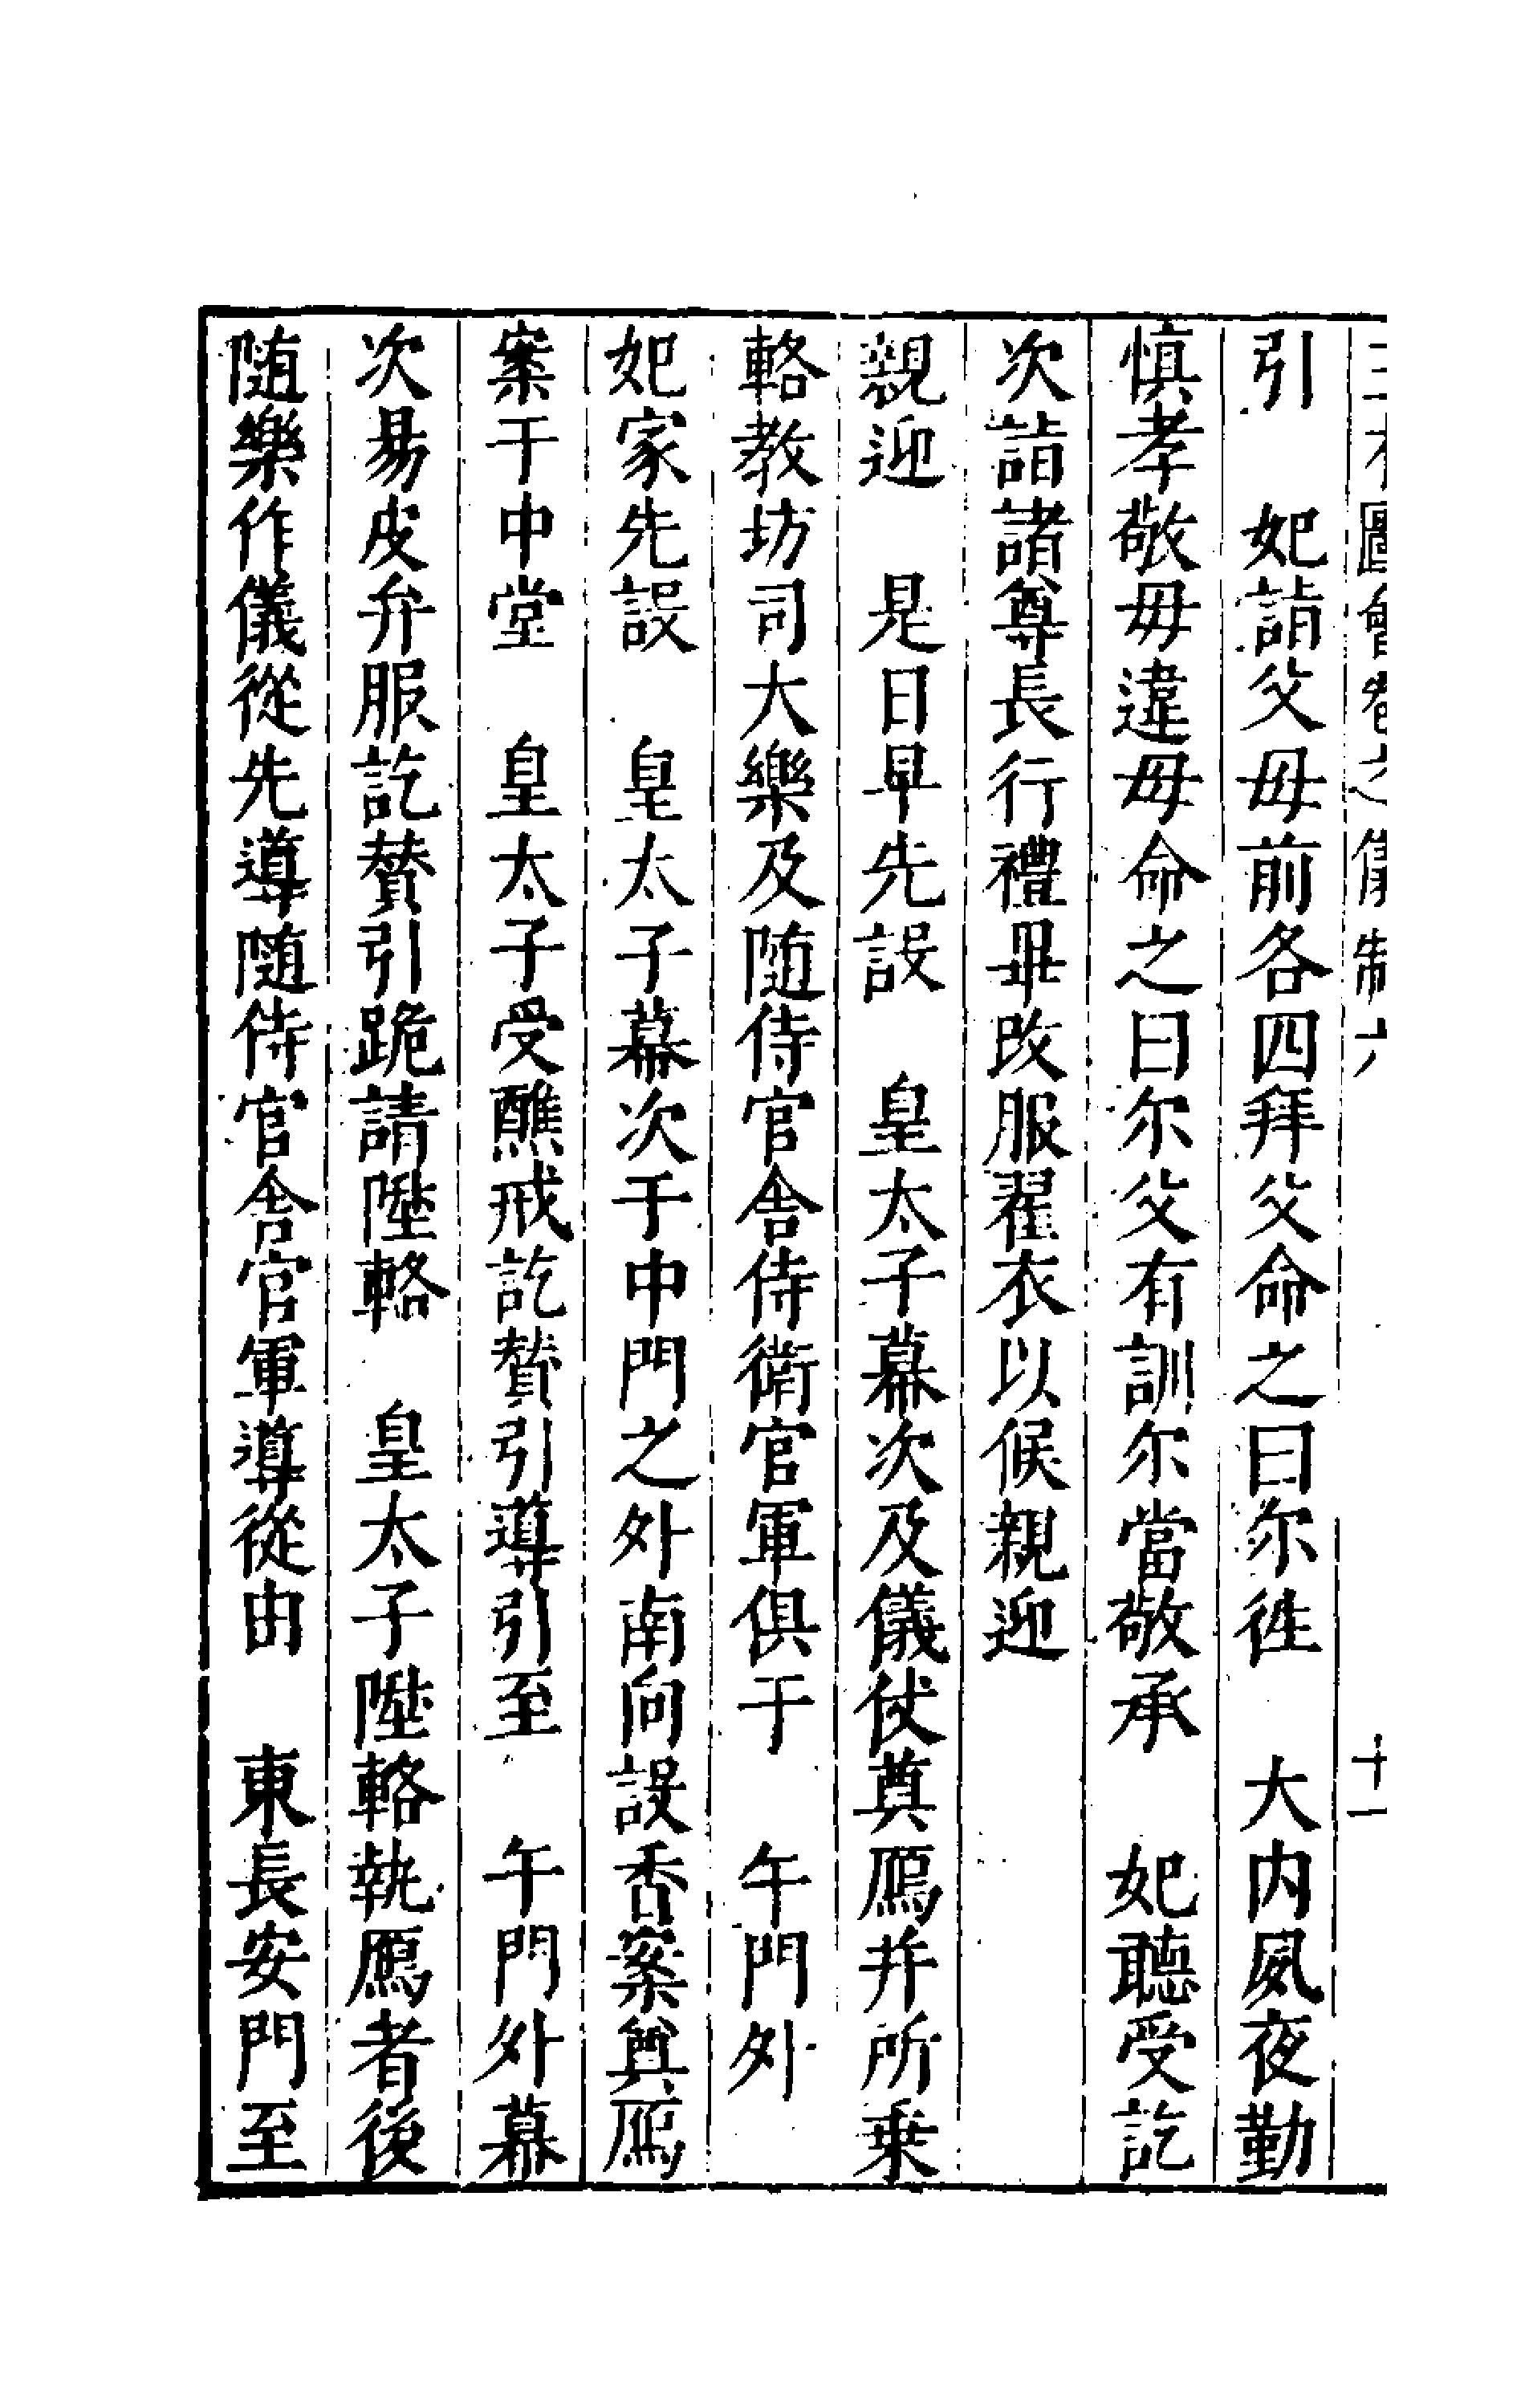 引　妃詣父母前各四拜父命之曰尔徃　大内夙夜勤
慎孝敬毋違母命之曰尔父有訓尔當敬承　妃聽受訖
次詣諸尊長行禮畢改服翟衣以候親迎
親迎　是日早先設　皇太子幕次及儀仗奠鴈并所乗
輅教坊司大樂及随侍官舍侍衛官軍俱于　午門外
妃家先設　皇太子幕次于中門之外南向設香案奠鴈
案于中堂　皇太子受醮戒訖賛引導引至　午門外幕
次易皮弁服訖賛引跪請陞輅　皇太子陞輅執鴈者後
随樂作儀從先導随侍官舍官軍導從由　東長安門至